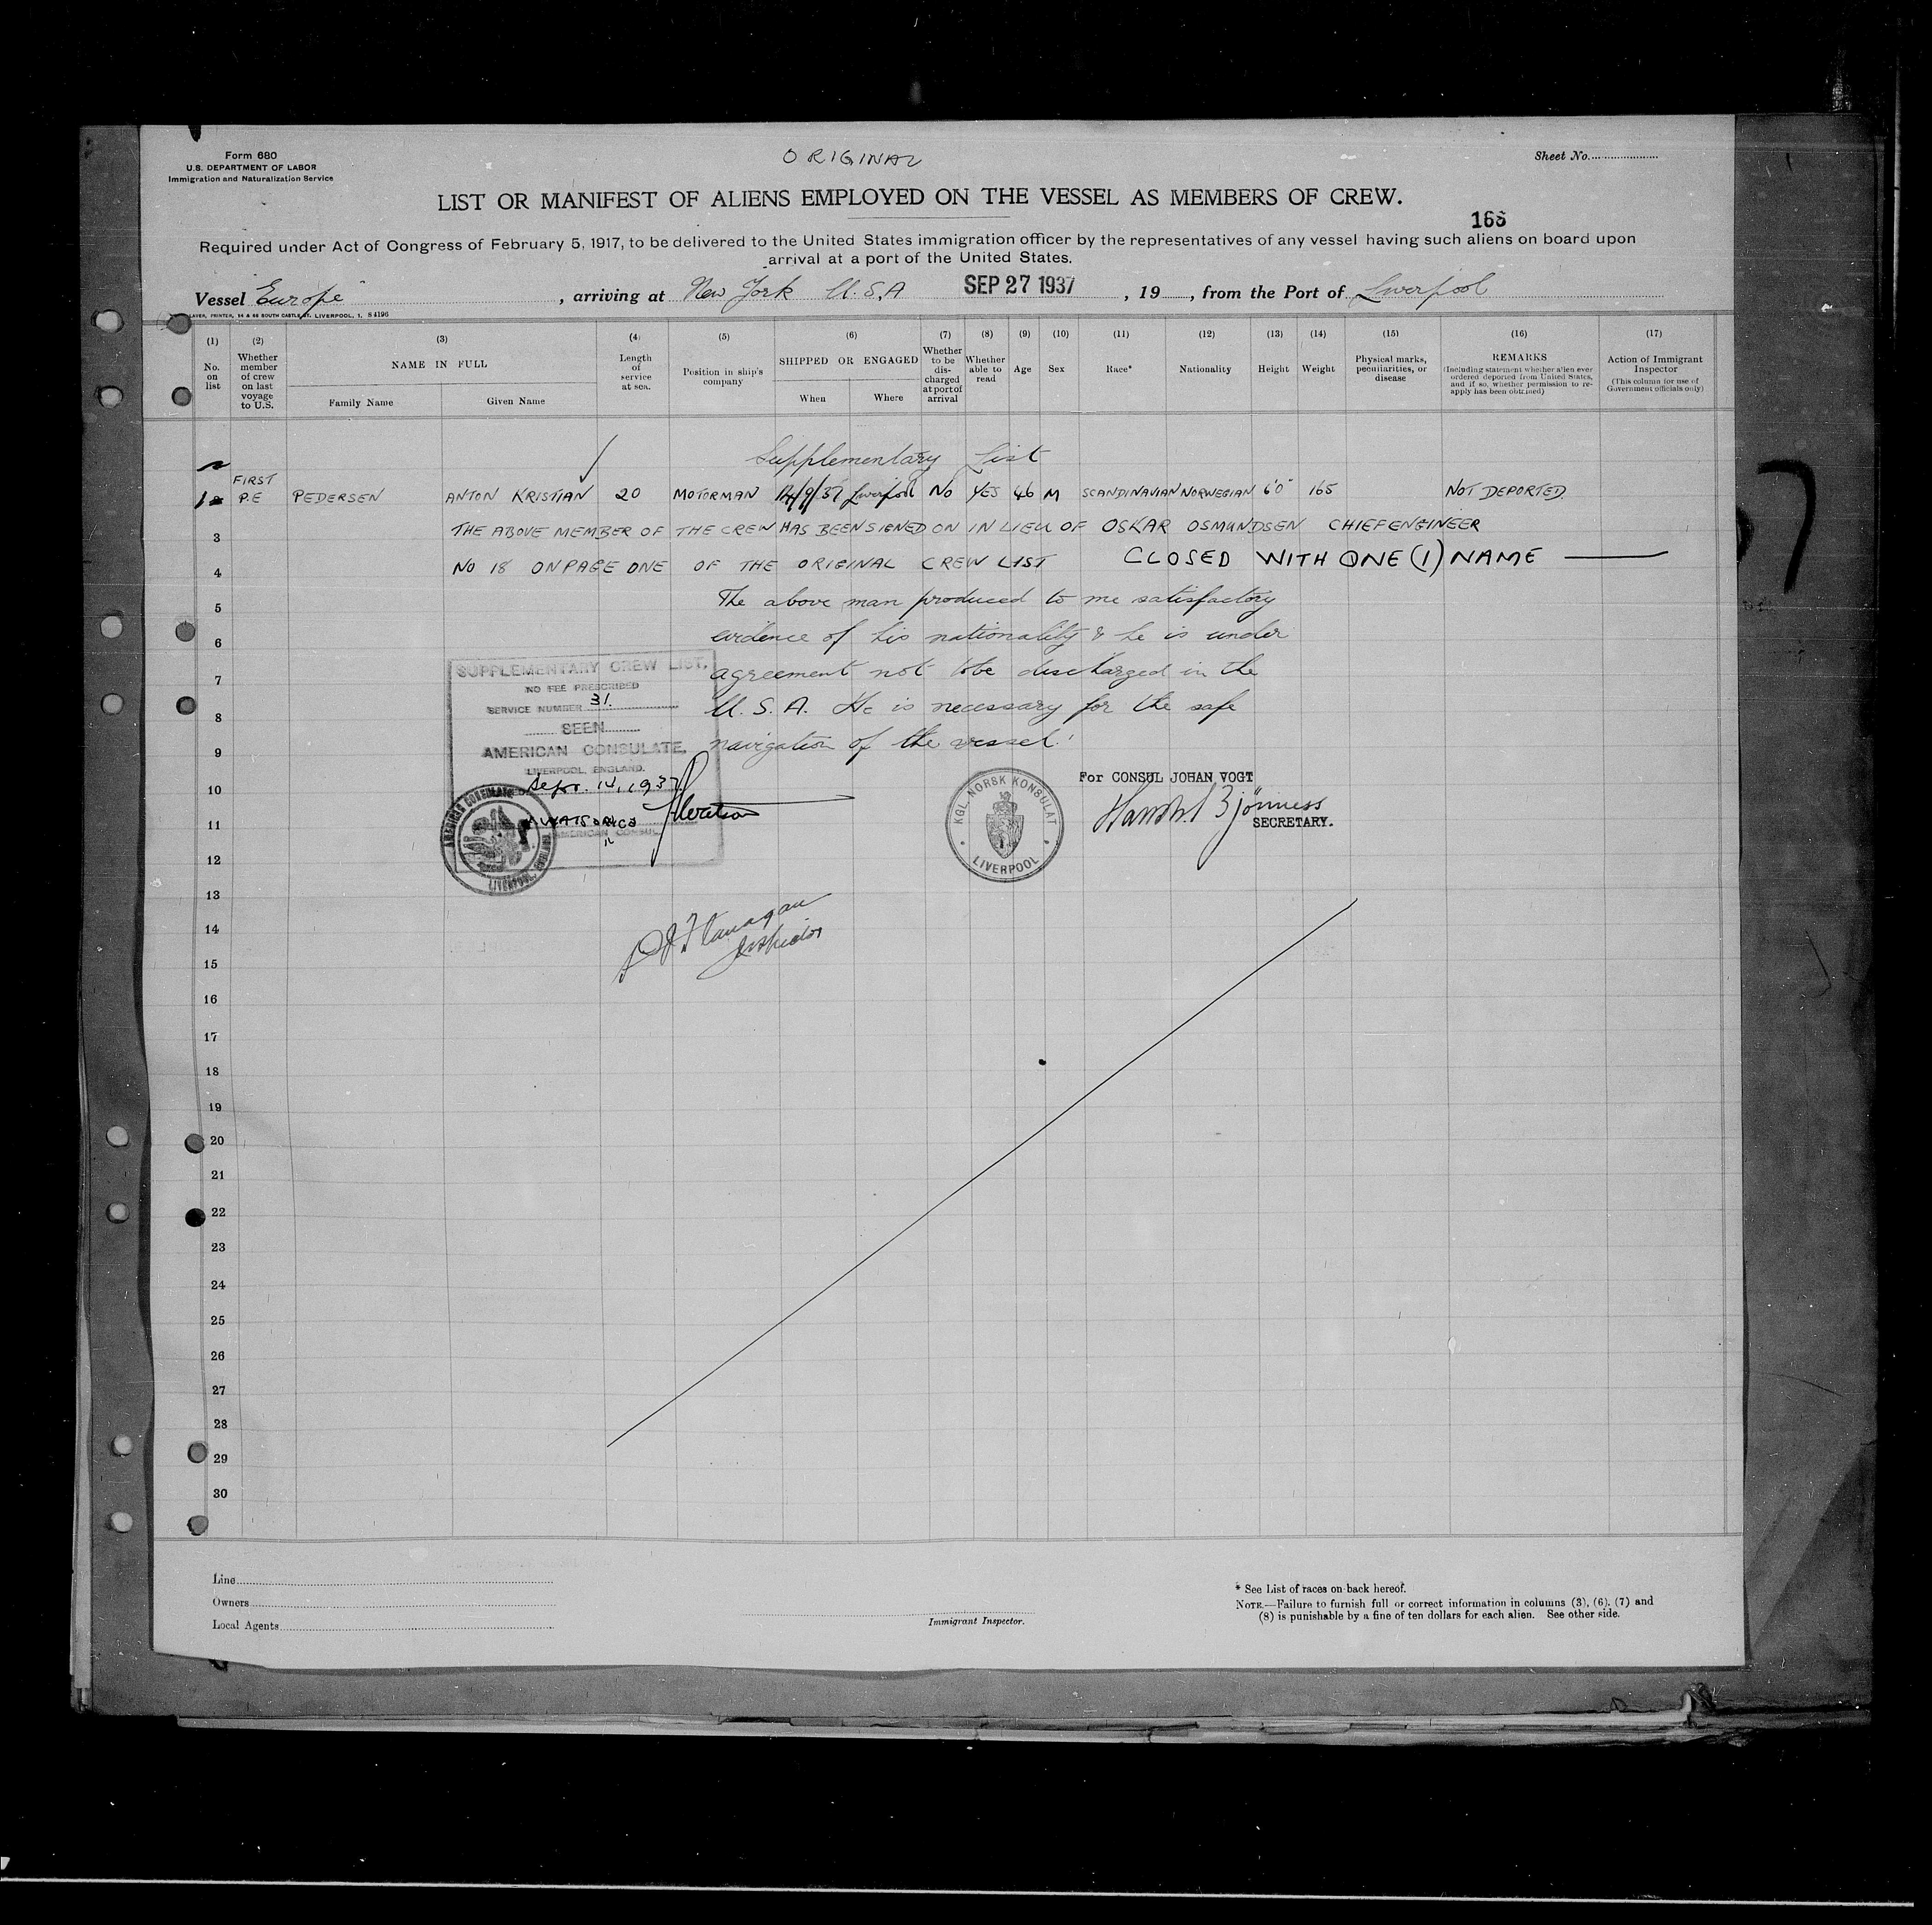 Form 680
U.S. DEPARTMENT OF LABOR
Immigration and Naturalization Service
ORIGINAL
Sheet No.
LIST OR MANIFEST OF ALIENS EMPLOYED ON THE VESSEL AS MEMBERS OF CREW.
168
Required under Act of Congress of February 5, 1917, to be delivered to the United States immigration officer by the representatives of any vessel having such aliens on board upon
arrival at a port of the United States.
Vessel "Europe", arriving at New York U.S.A SEP 27 1937, 19, from the Port of Liverpool
PRINTER, 84 & 86 SOUTH CASTLE ST. LIVERPOOL, 1. S4196
(1) (2) (3) (4) (5) (6) (7) (8) (9) (10) (11) (12) (13) (14) (15) (16) (17)
No. on list
Whether member of crew on last voyage to U.S.
NAME IN FULL
Family Name
Given Name
Length of service at sea.
Position in ship's company
SHIPPED OR ENGAGED
When
Where
Whether to be discharged at port of arrival
Whether able to read
Age
Sex
Race*
Nationality
Height
Weight
Physical marks, peculiarities, or disease
REMARKS
(Including statement whether alien ever ordered deported from United States, and if so, whether permission to re-apply has been obtained)
Action of Immigrant Inspector
(This column for use of Government officials only)
Supplementary List
FIRST
1 P.E PEDERSEN ANTON KRISTIAN 20 MOTORMAN 14/9/37 Liverpool NO YES 46 M SCANDINAVIAN NORWEGIAN 6'0" 165 NOT DEPORTED.
3 THE ABOVE MEMBER OF THE CREW HAS BEEN SIGNED ON IN LIEU OF OSKAR OSMUNDSEN CHIEF ENGINEER
4 NO 18 ON PAGE ONE OF THE ORIGINAL CREW LIST CLOSED WITH ONE (1) NAME
5 The above man produced to me satisfactory
6 evidence of his nationality & he is under
7 agreement not to be discharged in the
8 U.S.A. He is necessary for the safe
9 navigation of the vessel.
SUPPLEMENTARY CREW LIST.
NO FEE PRESCRIBED
SERVICE NUMBER 31.
SEEN
AMERICAN CONSULATE,
LIVERPOOL, ENGLAND.
Sepr. 14, 1937
AMERICAN CONSUL
AMERICAN CONSULATE
LIVERPOOL, ENGLAND
KGL. NORSK KONSULAT
LIVERPOOL
For CONSUL JOHAN VOGT
SECRETARY.
Flanagan
Inspector
10
11
12
13
14
15
16
17
18
19
20
21
22
23
24
25
26
27
28
29
30
Line
Owners
Local Agents
Immigrant Inspector.
* See List of races on back hereof.
NOTE.—Failure to furnish full or correct information in columns (3), (6), (7) and
(8) is punishable by a fine of ten dollars for each alien. See other side.